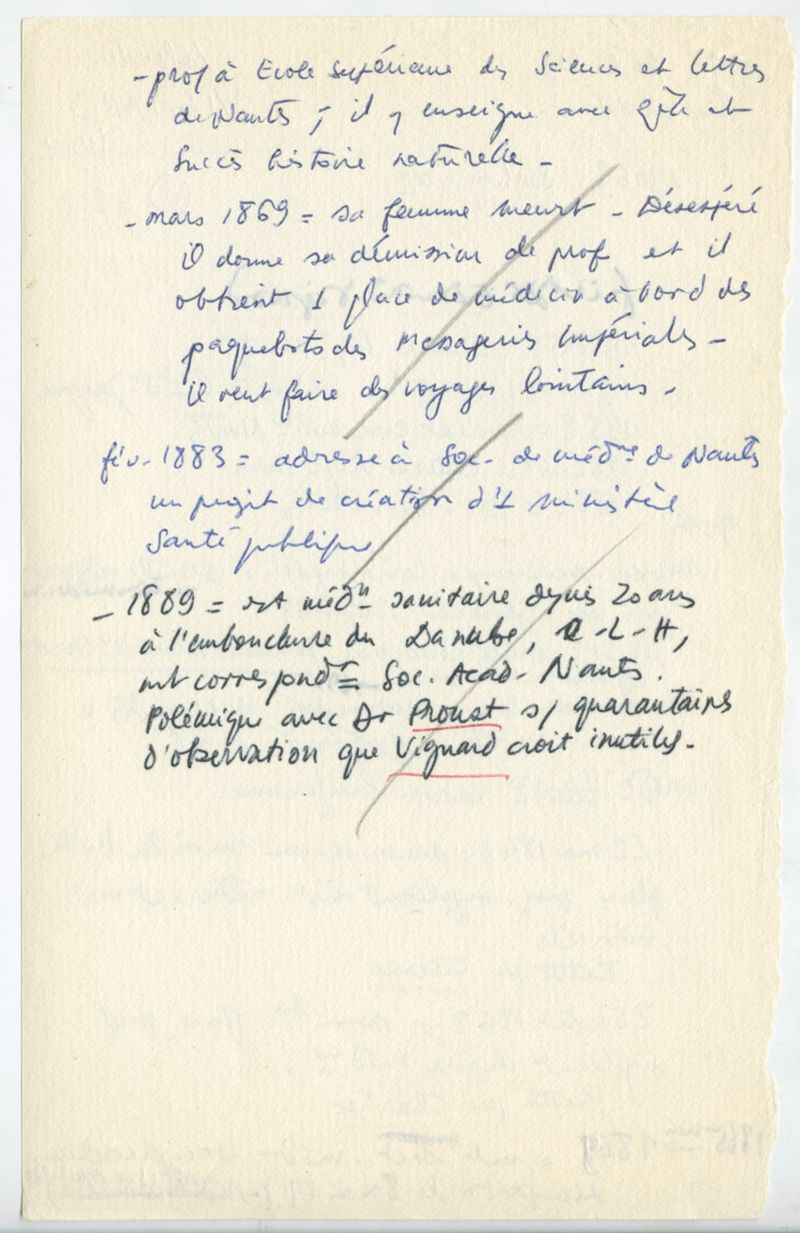 - prof à Ecole supérieure des Sciences et lettres
de Nantes ; il y enseigne avec zèle et
succès histoire naturelle -
- mars 1869 = sa femme meurt - Désespéré
il donne sa démission de prof et il
obtient 1 place de médecin à bord des
paquebots des Messageries Impériales -
il veut faire des voyages lointains -
fév. 1883 = adresse à Soc. de médne de Nantes
un projet de création d'1 ministère
Santé publique
- 1889 = est médn sanitaire depuis 20 ans
à l'embouchure du Danube, -L-H,
mt correspondt = Soc. Acad. Nantes.
Polémique avec Dr Proust s/ quarantaines
d'observation que Vignard croit inutiles.